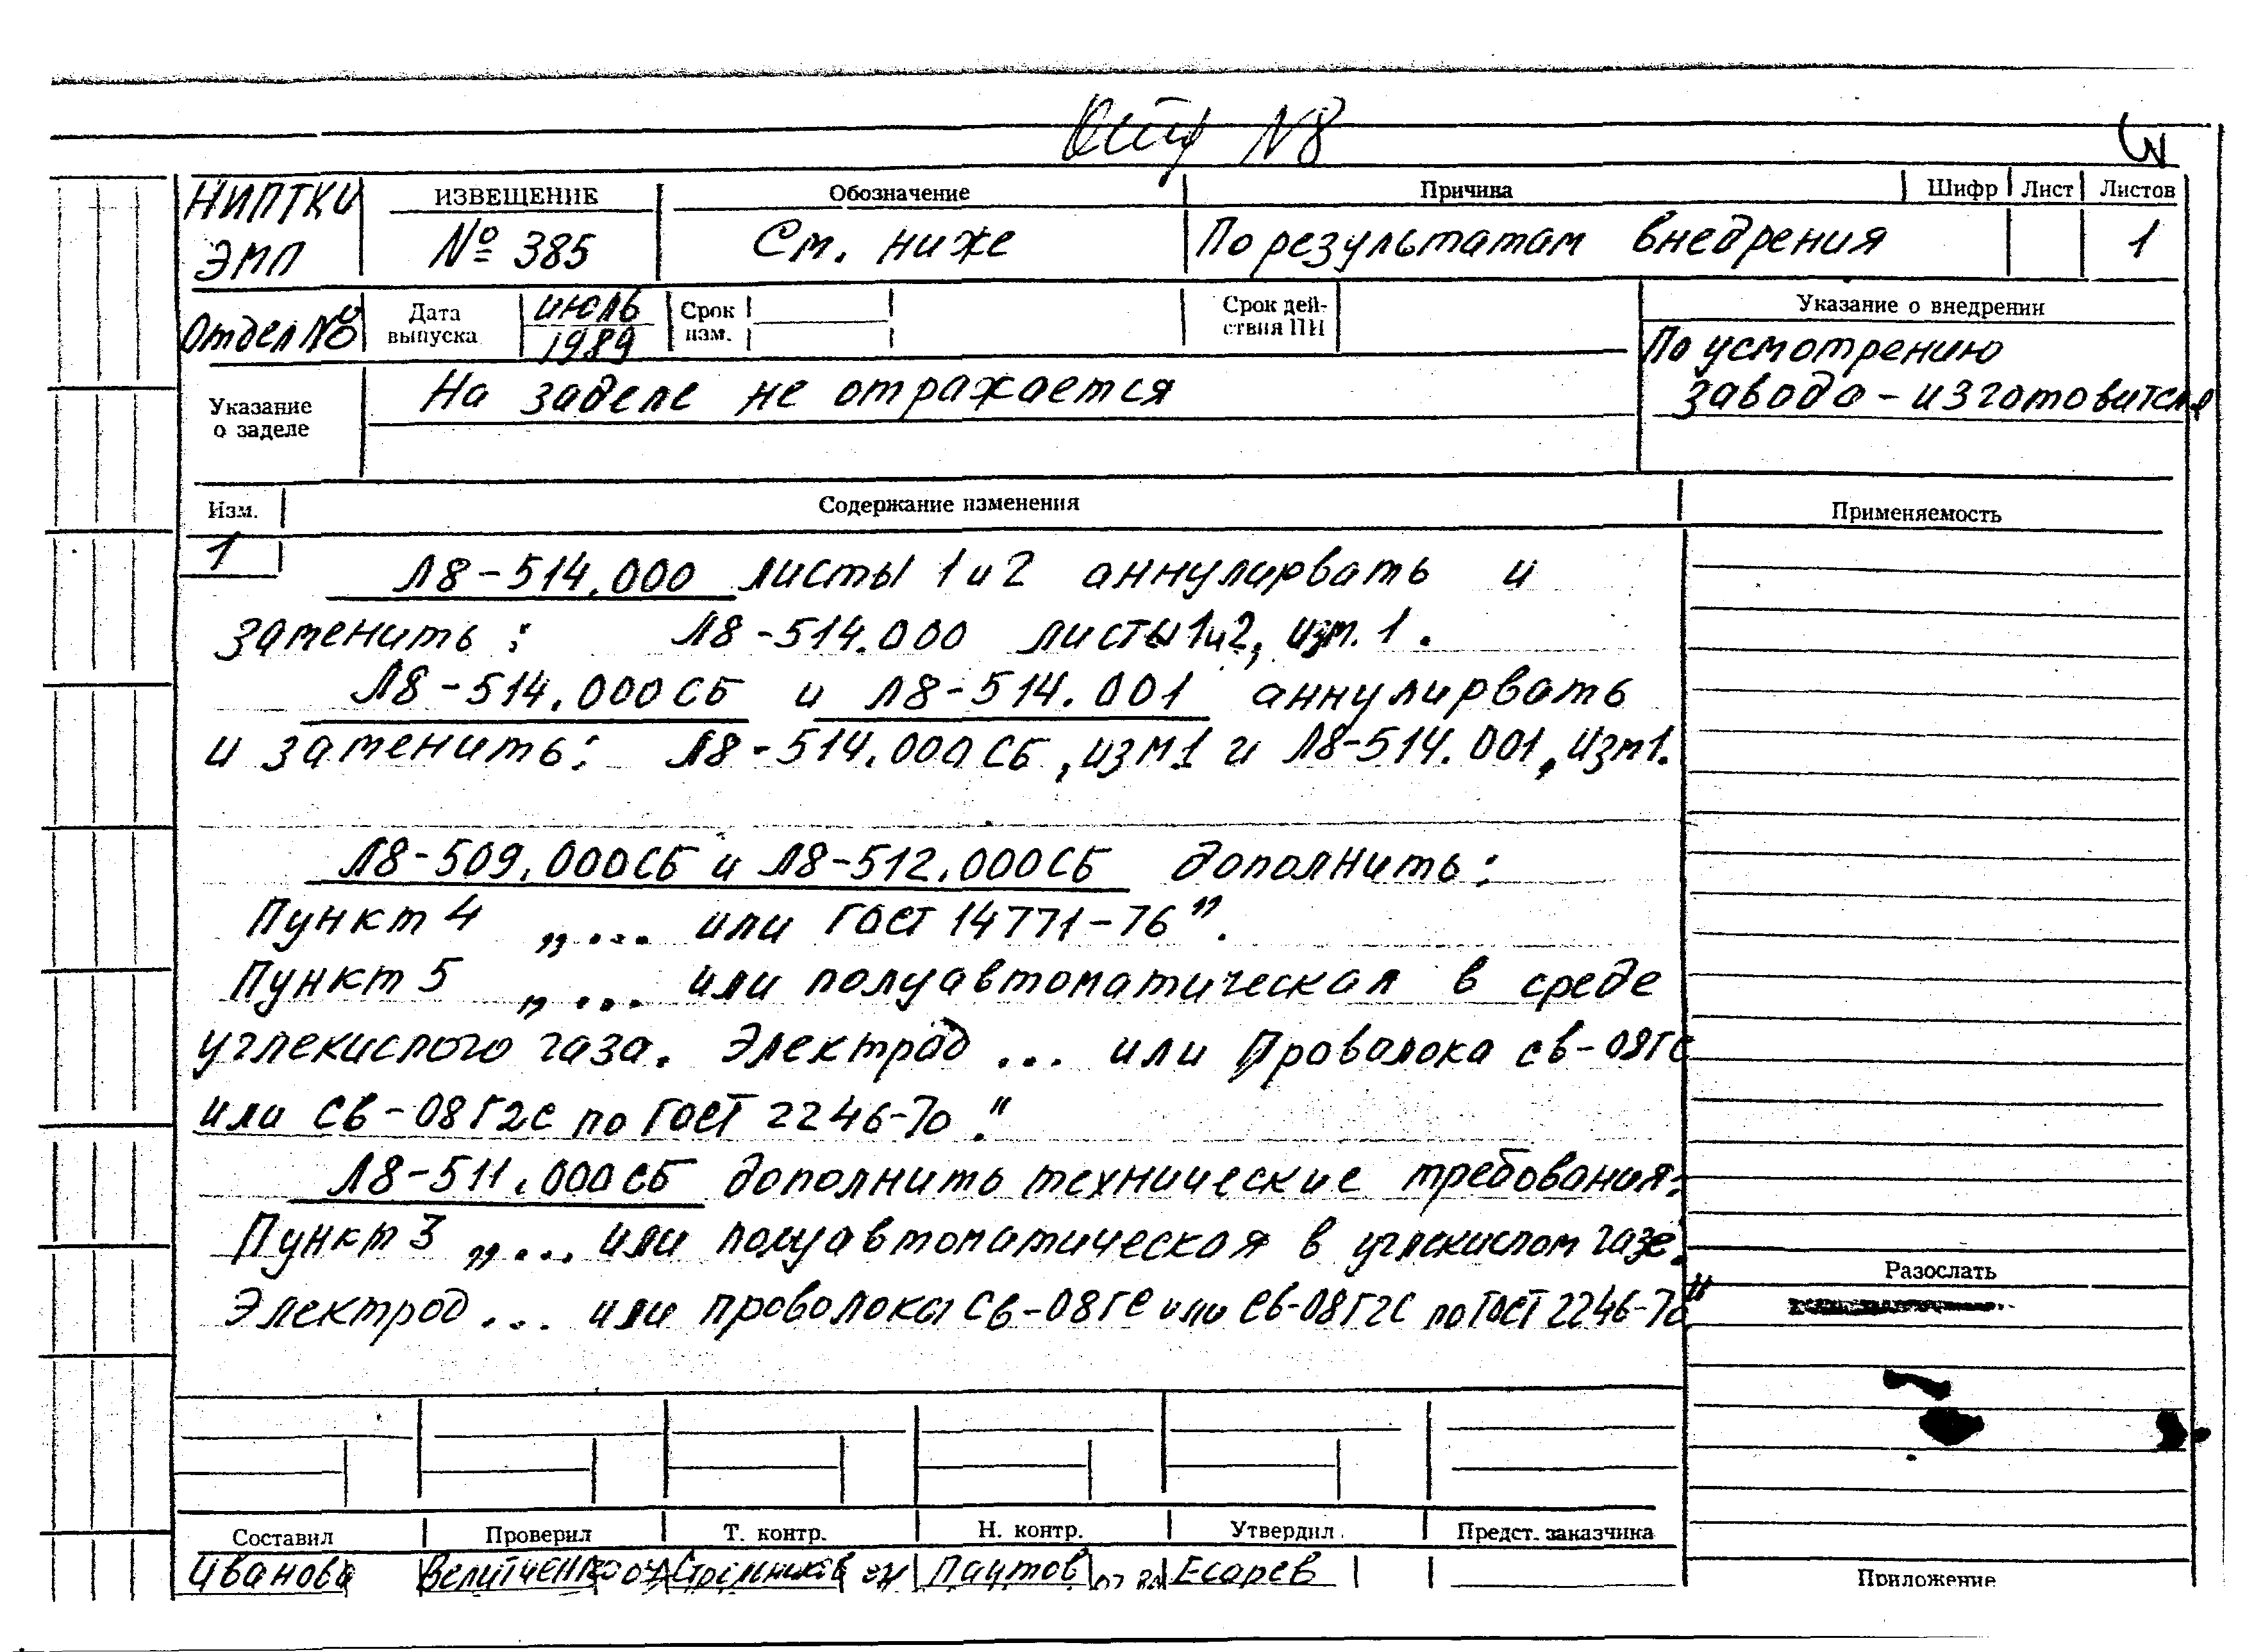 N8
НИПТКИ ИЗВЕЩЕНИЕ Обозначение Причина Шифр Лист Листов
ЭМП № 385 См. ниже По результатам внедрения 1
Отдел №8 Дата выпуска июль 1989 Срок изм. Срок дей-ствия ПИ Указание о внедрении
По усмотрению
завода-изготовителя
Указание
о заделе
На заделе не отражается
Изм. Содержание изменения Применяемость
1
Л8-514.000 листы 1 и 2 аннулирвать и
заменить: Л8-514.000 листы 1и2, изм. 1.
Л8-514.000СБ и Л8-514.001 аннулирвать
и заменить: Л8-514.000СБ, изм1 и Л8-514.001, изм1.
Л8-509.000СБ и Л8-512.000СБ дополнить:
Пункт 4 „... или ГОСТ 14771-76".
Пункт 5 „... или полуавтоматическая в среде
углекислого газа. Электрод ... или Проволока св-08ГС
или Св-08Г2С по ГОСТ 2246-70."
Л8-511.000СБ дополнить технические требования:
Пункт 3 „... или полуавтоматическая в углекислом газе.
Электрод ... или проволока Св-08ГС или Св-08Г2С по ГОСТ 2246-70"
Разослать
Составил Проверил Т. контр. Н. контр. Утвердил Предст. заказчика
Иванова Стрельников Паутов Есарев
Приложение